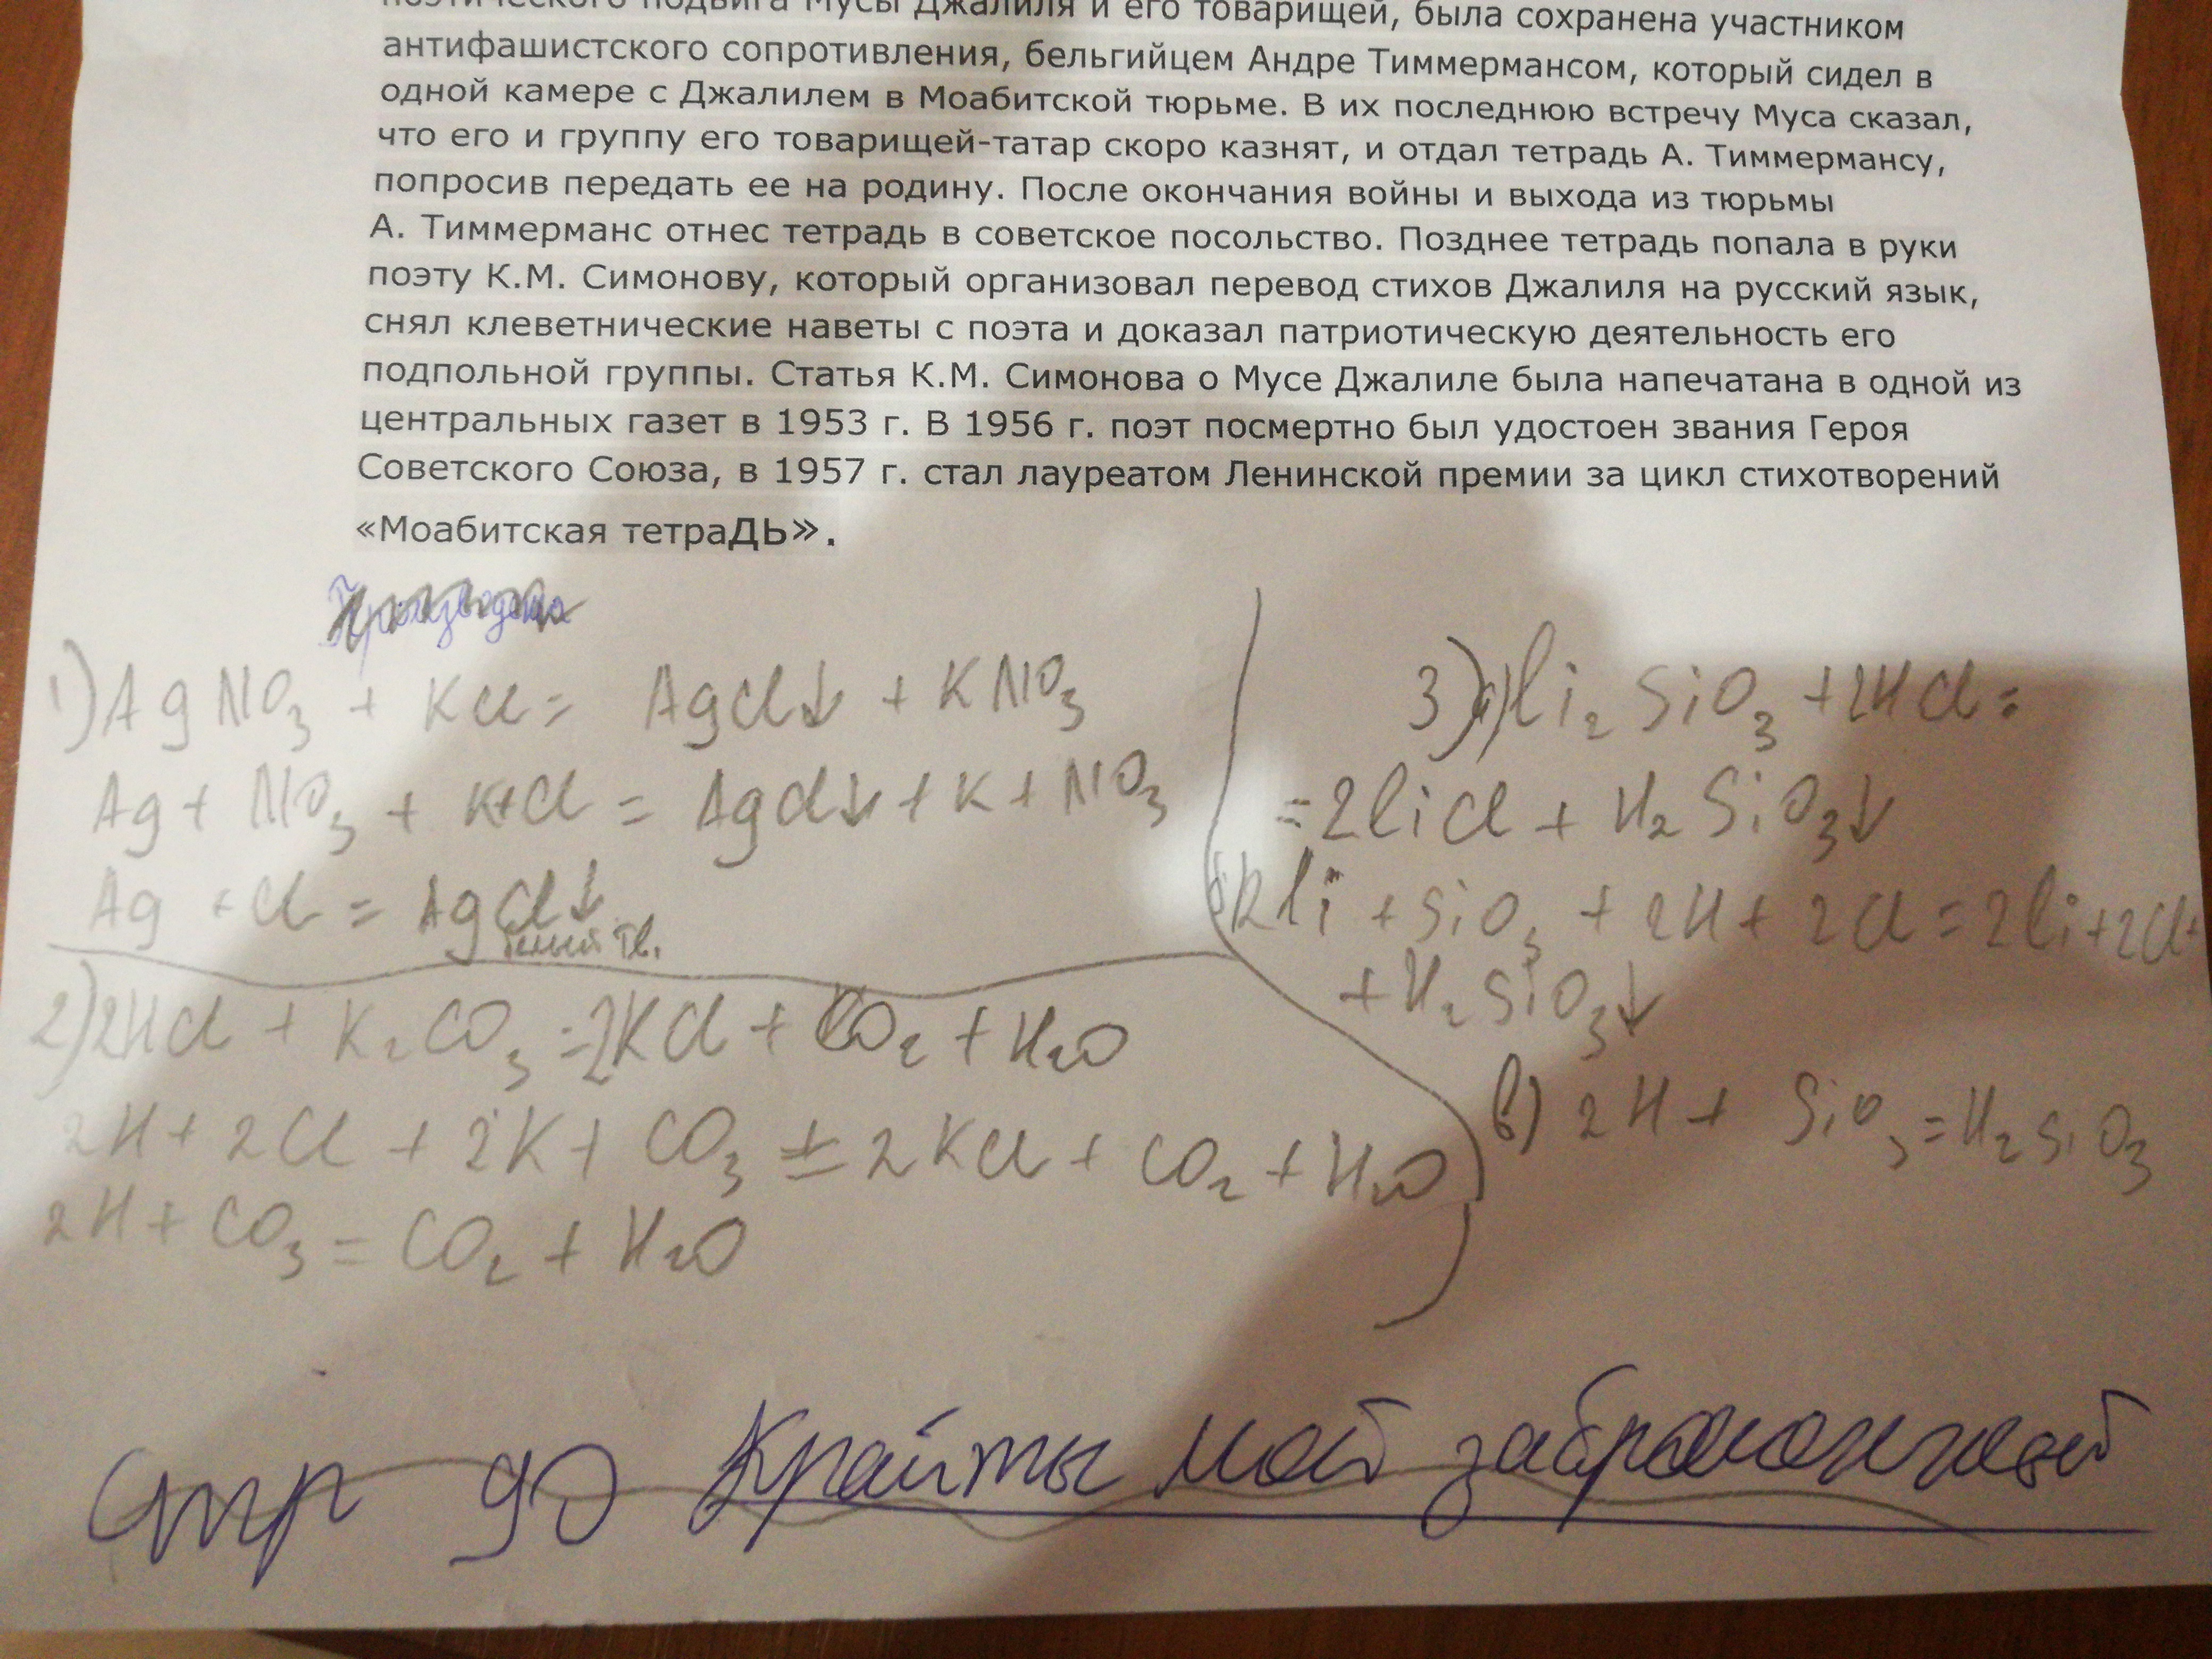 поэтического подвига Мусы Джалиля и его товарищей, была сохранена участником
антифашистского сопротивления, бельгийцем Андре Тиммермансом, который сидел в
одной камере с Джалилем в Моабитской тюрьме. В их последнюю встречу Муса сказал,
что его и группу его товарищей-татар скоро казнят, и отдал тетрадь А. Тиммермансу,
попросив передать ее на родину. После окончания войны и выхода из тюрьмы
А. Тиммерманс отнес тетрадь в советское посольство. Позднее тетрадь попала в руки
поэту К.М. Симонову, который организовал перевод стихов Джалиля на русский язык,
снял клеветнические наветы с поэта и доказал патриотическую деятельность его
подпольной группы. Статья К.М. Симонова о Мусе Джалиле была напечатана в одной из
центральных газет в 1953 г. В 1956 г. поэт посмертно был удостоен звания Героя
Советского Союза, в 1957 г. стал лауреатом Ленинской премии за цикл стихотворений
«Моабитская тетраДЬ».
1) AgNO₃ + KCl = AgCl↓ + KNO₃
Ag + NO₃ + K + Cl = AgCl↓ + K + NO₃
Ag + Cl = AgCl↓
белый тв.
2) 2HCl + K₂CO₃ = 2KCl + CO₂ + H₂O
2H + 2Cl + 2K + CO₃ = 2KCl + CO₂ + H₂O
2H + CO₃ = CO₂ + H₂O
3) а) li₂SiO₃ + 2HCl =
= 2liCl + H₂SiO₃↓
б) 2li + SiO₃ + 2H + 2Cl = 2li + 2Cl +
+ H₂SiO₃↓
в) 2H + SiO₃ = H₂SiO₃
Стр 90